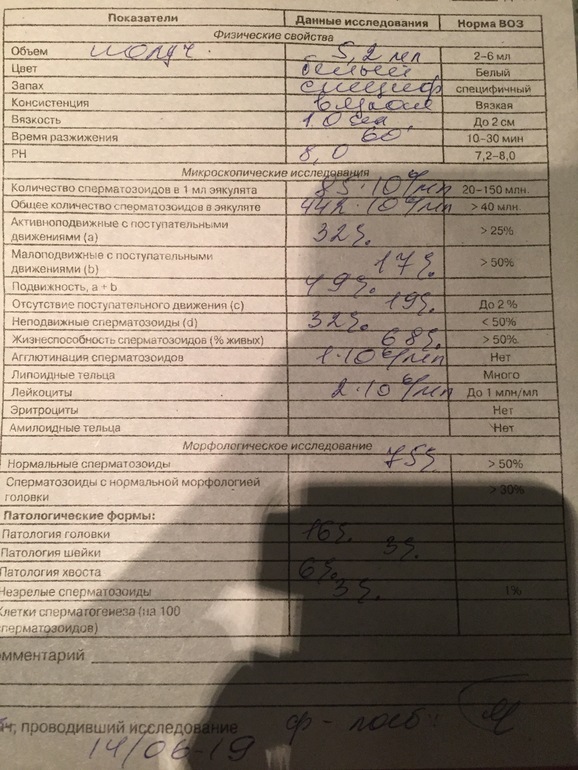 Показатели Данные исследования Норма ВОЗ
Физические свойства
Объем 5,2 мл 2–6 мл
Цвет белый Белый
Запах специф специфичный
Консистенция вязкая Вязкая
Вязкость 1.0 см До 2 см
Время разжижения 60' 10–30 мин
РН 8,0 7,2–8,0
Микроскопические исследования
Количество сперматозоидов в 1 мл эякулята 85·10⁶/мл 20–150 млн.
Общее количество сперматозоидов в эякуляте 442·10⁶/мл > 40 млн.
Активноподвижные с поступательными
движениями (a) 32% > 25%
Малоподвижные с поступательными
движениями (b) 17% > 50%
Подвижность, a + b 49%
Отсутствие поступательного движения (c) 19% До 2 %
Неподвижные сперматозоиды (d) 32% < 50%
Жизнеспособность сперматозоидов (% живых) 68% > 50%
Агглютинация сперматозоидов 1·10⁶/мл Нет
Липоидные тельца Много
Лейкоциты 2·10⁶/мл До 1 млн/мл
Эритроциты Нет
Амилоидные тельца Нет
Морфологическое исследование
Нормальные сперматозоиды 75% > 50%
Сперматозоиды с нормальной морфологией
головки > 30%
Патологические формы:
Патология головки 16%
Патология шейки 3%
Патология хвоста 6%
Незрелые сперматозоиды 3% 1%
Клетки сперматогенеза (на 100
сперматозоидов)
омментарий
ч, проводивший исследование
14/06-19